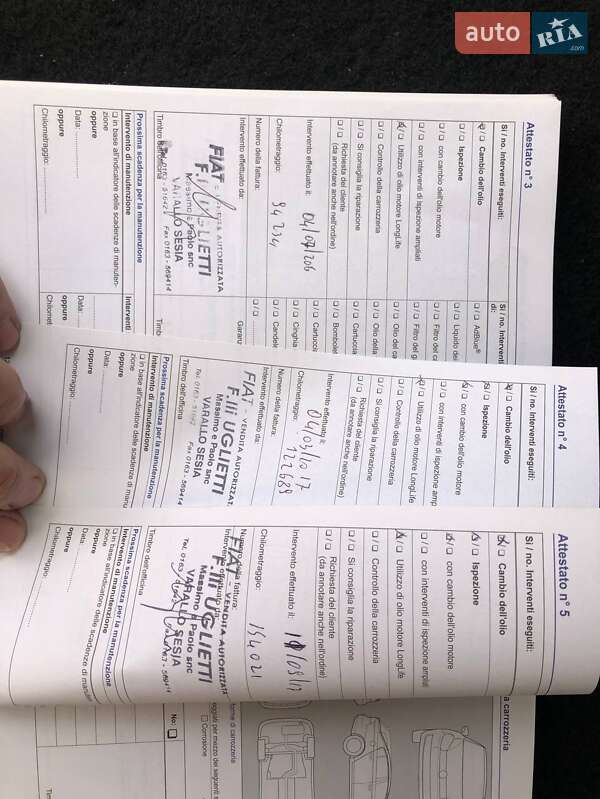 auto
RIA
.com
Attestato n° 3
Sì / no. Interventi eseguiti:
Cambio dell'olio
Ispezione
con cambio dell'olio motore
con interventi di ispezione ampliati
Utilizzo di olio motore LongLife
Controllo della carrozzeria
Si consiglia la riparazione
Richiesta del cliente
(da annotare anche nell'ordine)
Intervento effettuato il:
Chilometraggio: 94234
Numero della fattura:
Intervento effettuato da:
FIAT
F.lli UGLIETTI
Massimo e Paolo snc
VARALLO SESIA
Fax 0163 - 569414
Timbro dell'officina
Prossima scadenza per la manutenzione
Intervento di manutenzione
in base all'indicatore delle scadenze di manuten-
zione
oppure
Data:
oppure
Chilometraggio:
Sì / no. Interventi
di:
AdBlue®
Liquido dei
Filtro del c
Filtro del g
Olio del ca
Olio della
Cartuccia
Bombolet
Cartuccia
Cinghia
Candele
Garanz
Timb
Interventi
Data:
oppure
Chilomet
Attestato n° 4
Sì / no. Interventi eseguiti:
Cambio dell'olio
Ispezione
con cambio dell'olio motore
con interventi di ispezione ampl
Utilizzo di olio motore LongLife
Controllo della carrozzeria
Si consiglia la riparazione
Richiesta del cliente
(da annotare anche nell'ordine)
Intervento effettuato il:
Chilometraggio: 122689
Numero della fattura:
Intervento effettuato da:
FIAT - VENDITA AUTORIZZATA
F.lli UGLIETTI
Massimo e Paolo snc
VARALLO SESIA
Fax 0163 - 569414
Timbro dell'officina
Prossima scadenza per la manutenzione
Intervento di manutenzione
in base all'indicatore delle scadenze di manu
zione
oppure
Data:
oppure
Chilometraggio:
Attestato n° 5
Sì / no. Interventi eseguiti:
Cambio dell'olio
Ispezione
con cambio dell'olio motore
con interventi di ispezione ampli
Utilizzo di olio motore LongLife
Controllo della carrozzeria
Si consiglia la riparazione
Richiesta del cliente
(da annotare anche nell'ordine)
Intervento effettuato il:
Chilometraggio: 154021
Numero della fattura:
FIAT - VENDITA AUTORIZZATA
F.lli UGLIETTI
Massimo e Paolo snc
VARALLO SESIA
Timbro dell'officina
Prossima scadenza per la manutenzione
Intervento di manutenzione
in base all'indicatore delle scadenze di manuten
zione
oppure
Data:
oppure
Chilometraggio:
a carrozzeria
forme di carrozzeria
Corrosione
No: